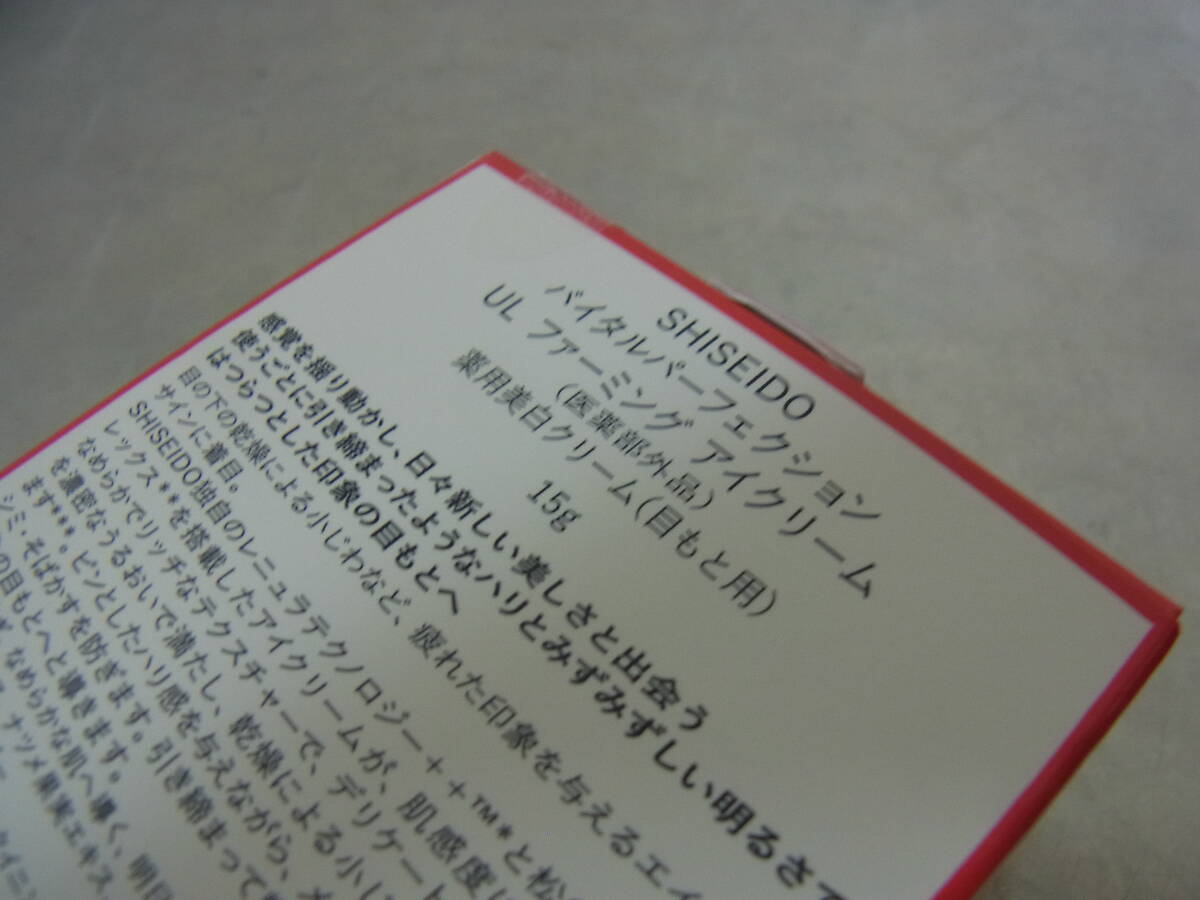 SHISEIDO
バイタルパーフェクション
UL ファーミング アイクリーム
(医薬部外品)
薬用美白クリーム(目もと用)
15g
感覚を揺り動かし、日々新しい美しさと出会う
使うごとに引き締まったようなハリとみずみずしい明るさで
はつらつとした印象の目もとへ
目の下の乾燥による小じわなど、疲れた印象を与えるエイ
サインに着目。
SHISEIDO独自のレニュラテクノロジー++™*と松
レックス**を搭載したアイクリームが、肌感度に
なめらかでリッチなテクスチャーで、デリケート
を濃密なうるおいで満たし、乾燥による小じ
ます***。ピンとしたハリ感を与えながら、メ
シミ・そばかすを防ぎます。引き締まって
の目もとへと導きます。
なめらかな肌へ導く、明日
ナツメ果実エキス